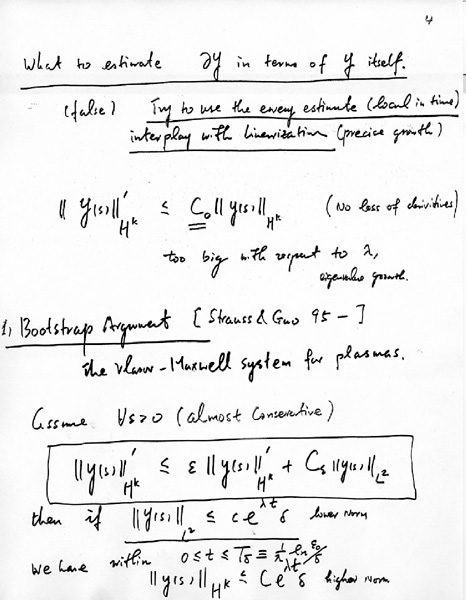 4
What to estimate ∂y in terms of y itself.
(false) Try to use the energy estimate (local in time)
interplay with linearization (precise growth)
‖y(s)‖'_{H^k} ≤ C_0 ‖y(s)‖_{H^k} (No loss of derivitives)
too big with respect to λ,
eigenvalue growth.
1, Bootstrap Argument [Strauss & Guo 95 - ]
The Vlasov-Maxwell system for plasmas.
Assume ∀ε>0 (almost conservative)
‖y(s)‖'_{H^k} ≤ ε ‖y(s)‖'_{H^k} + C_ε ‖y(s)‖_{L^2}
then if ‖y(s)‖_{L^2} ≤ c e^{λt} δ lower norm
we have within 0 ≤ t ≤ T_δ ≡ 1/λ ln ε_0/δ
‖y(s)‖_{H^k} ≤ C e^{λt} δ higher norm